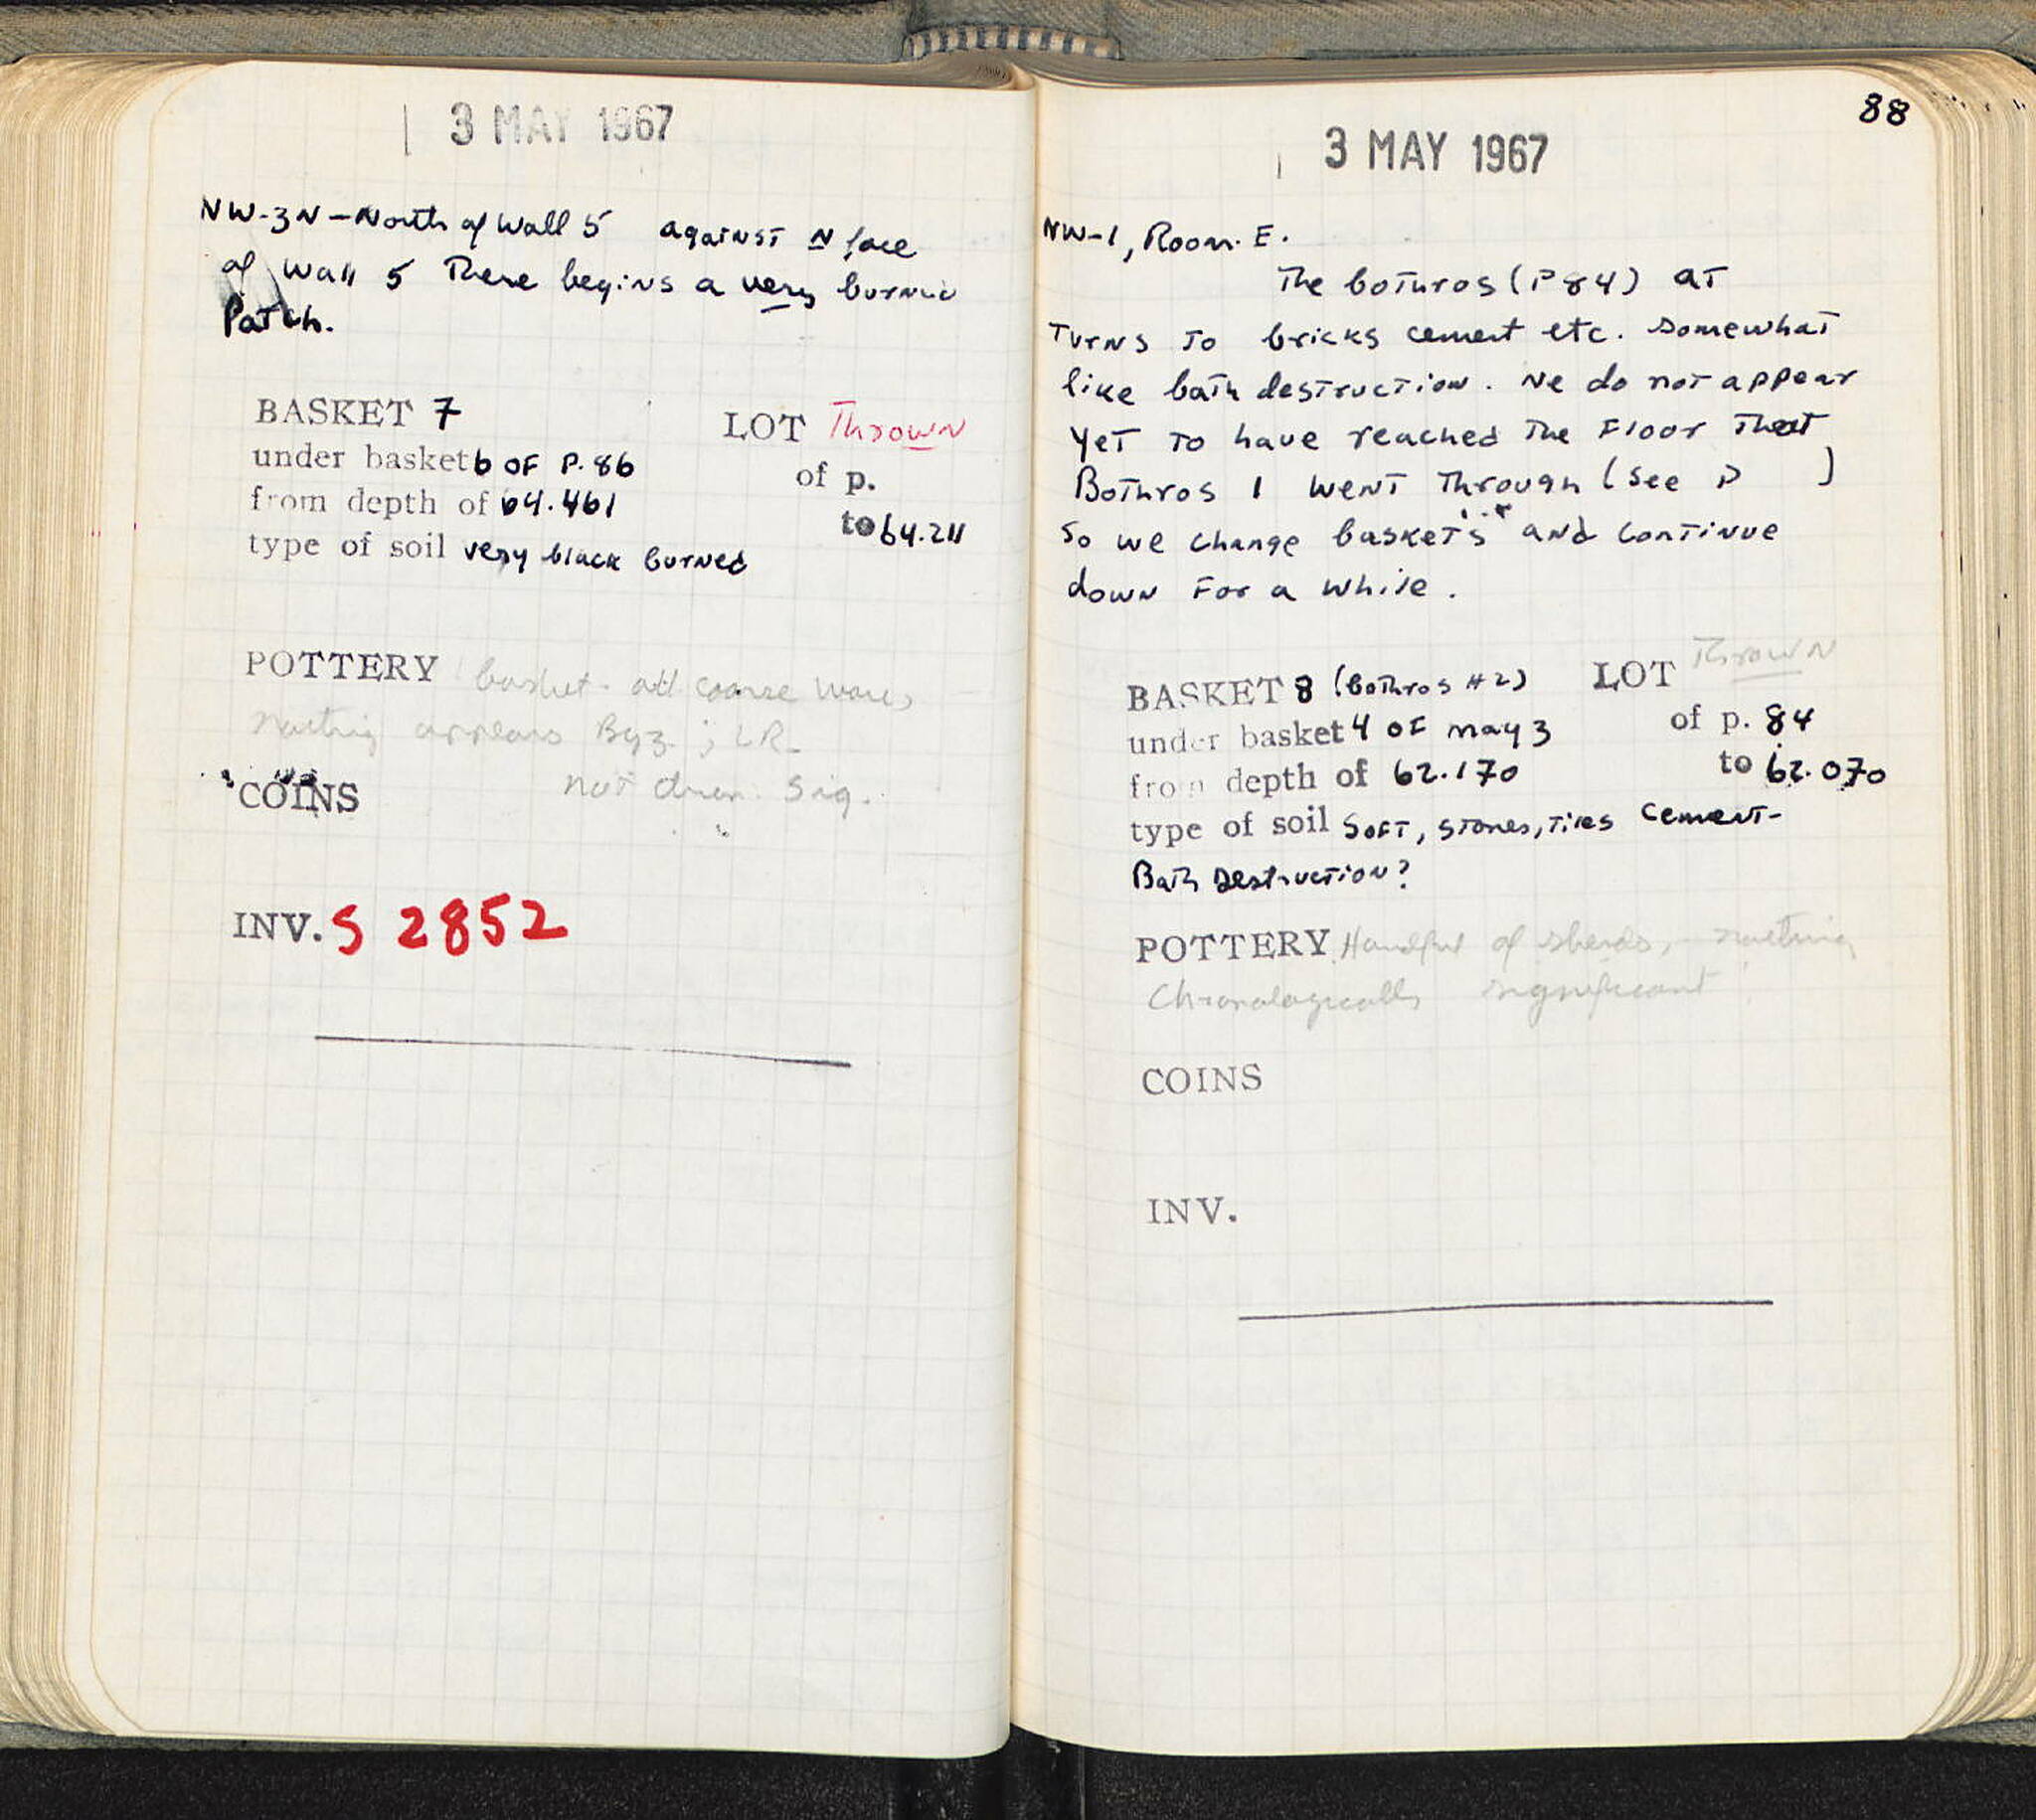 3 MAY 1967
NW-3N - North of Wall 5 against N face
of Wall 5 There begins a very burned
Patch.
BASKET 7 LOT Thrown
under basket 6 OF P. 86 of p.
from depth of 64.461 to 64.211
type of soil very black burned
POTTERY basket - all coarse ware,
nothing appears Byz. ; LR.
not chron. sig.
COINS
INV. S 2852
88
3 MAY 1967
NW-1, Room E.
The bothros (P 84) at
turns to bricks cement etc. somewhat
like bath destruction. We do not appear
yet to have reached the floor that
Bothros 1 went through (see P )
so we change baskets and continue
down for a while.
BASKET 8 (bothros #2) LOT Thrown
under basket 4 OF may 3 of p. 84
from depth of 62.170 to 62.070
type of soil soft, stones, tiles cement-
Bath Destruction?
POTTERY Handful of sherds, nothing
chronologically significant
COINS
INV.